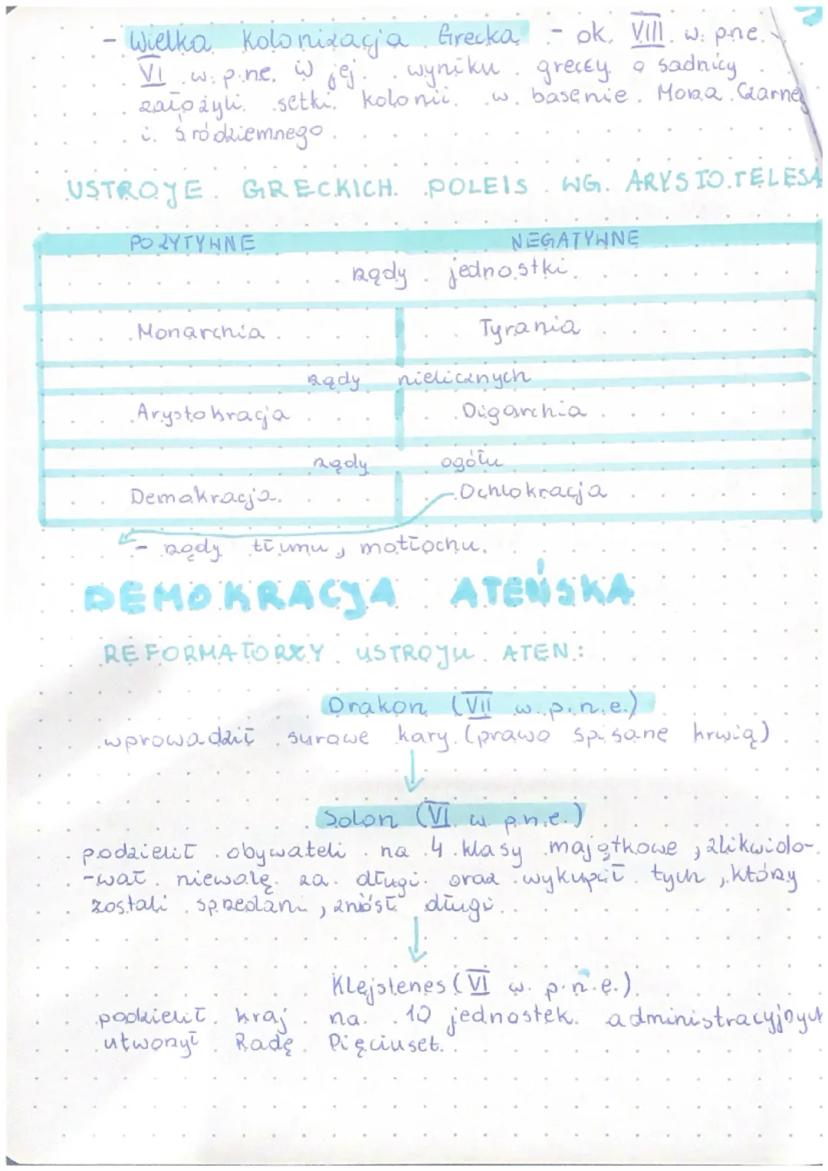 - Wielka Kolonizacja Grecka - ok. VIII w. p.n.e.
VI w. p.n.e. W jej wyniku greccy osadnicy
założyli setki kolonii w basenie Morza Czarnego
i śródziemnego.
USTROJE GRECKICH POLEIS WG. ARYSTOTELESA
POZYTYWNE NEGATYWNE
rządy jednostki
Monarchia Tyrania
rządy nielicznych
Arystokracja Oligarchia
rządy ogółu
Demokracja Ochlokracja
- rządy tłumu, motłochu.
DEMOKRACJA ATEŃSKA
REFORMATORZY USTROJU ATEN:
Drakon (VII w. p.n.e.)
wprowadził surowe kary (prawo spisane krwią)
Solon (VI w p.n.e.)
podzielił obywateli na 4 klasy majątkowe, zlikwido-
-wał niewolę za długi oraz wykupił tych, którzy
zostali sprzedani, zniósł długi.
Klejstenes (VI w. p.n.e.)
podzielił kraj na 10 jednostek administracyjnych
utworzył Radę Pięciuset.